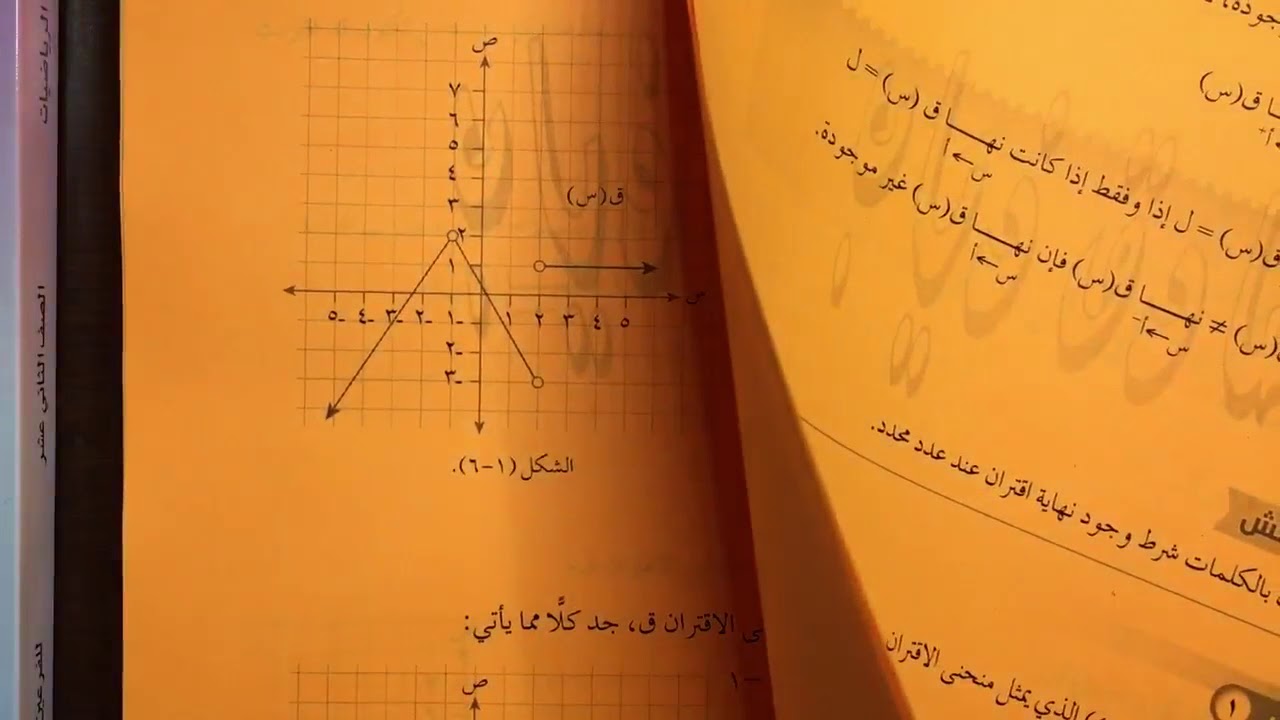 جودة،
ا ق(س)
س←أ
ق(س) = ل إذا وفقط إذا كانت نهـا ق (س) = ل
س←أ
(س) ≠ نهـا ق(س) فإن نهـا ق(س) غير موجودة.
س←أ-
س←أ
بالكلمات شرط وجود نهاية اقتران عند عدد محدد.
١
الذي يمثل منحنى الاقتران
ص
٧
٦
٥
٤
٣
ق(س)
٢
١
س
-٥ -٤ -٣ -٢ -١ ١ ٢ ٣ ٤ ٥
-٢
-٣
الشكل (١-٦).
الاقتران ق، جد كلًّا مما يأتي:
-١
ص
الرياضيات
الصف الثاني عشر
للفرعين